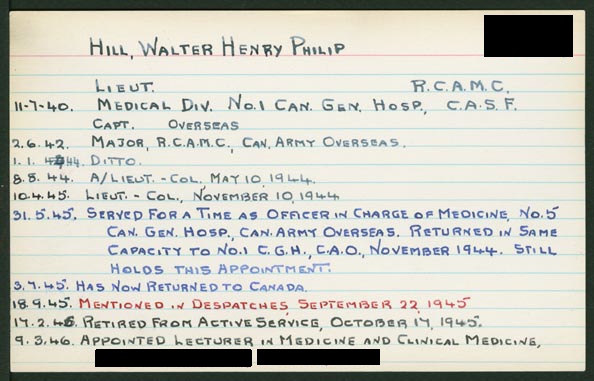 HILL, WALTER HENRY PHILIP
LIEUT. R.C.A.M.C.
11-7-40. MEDICAL DIV. NO.1 CAN. GEN. HOSP., C.A.S.F.
CAPT. OVERSEAS
2.6.42. MAJOR, R.C.A.M.C., CAN. ARMY OVERSEAS.
1.1.44. DITTO.
8.8.44. A/LIEUT.-COL., MAY 10, 1944.
10.4.45. LIEUT.-COL., NOVEMBER 10, 1944
31.5.45. SERVED FOR A TIME AS OFFICER IN CHARGE OF MEDICINE, NO.5
CAN. GEN. HOSP., CAN. ARMY OVERSEAS. RETURNED IN SAME
CAPACITY TO NO.1 C.G.H., C.A.O., NOVEMBER 1944. STILL
HOLDS THIS APPOINTMENT.
3.7.45. HAS NOW RETURNED TO CANADA.
18.9.45. MENTIONED IN DESPATCHES, SEPTEMBER 22, 1945
17.2.46. RETIRED FROM ACTIVE SERVICE, OCTOBER 17, 1945.
9.3.46. APPOINTED LECTURER IN MEDICINE AND CLINICAL MEDICINE,